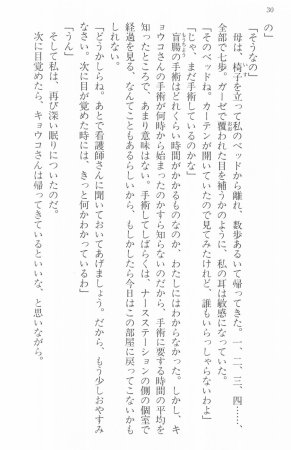 30
の」
「そうなの」
　母は、椅子を立って私のベッドから離れ、数歩あるいて帰ってきた。一、二、三、四……、
全部で七歩。ガーゼで覆われた目を補うかのように、私の耳は敏感になっていた。
「そのベッドね。カーテンが開いていたので見てみたけれど、誰もいらっしゃらないわよ」
「じゃ、まだ手術しているのかな」
　盲腸の手術はどれくらい時間がかかるものなのか、わたしにはわからなかった。だが、キ
ョウコさんの手術が何時から始まったのかすら知らないのだから、手術に要する時間の平均を
知ったところで、あまり意味はない。手術してしばらくは、ナースステーションの側の個室で
経過を見る、なんてこともあるらしいから、もしかしたら今日はこの部屋に戻ってこないかも
しれない。
「どうかしらね。あとで看護師さんに聞いておいてあげましょう。だから、もう少しおやすみ
なさい。次に目が覚めた時には、きっと何かわかっているわ」
「うん」
　そして私は、再び深い眠りについたのだ。
　次に目覚めたら、キョウコさんは帰ってきているといいな、と思いながら。